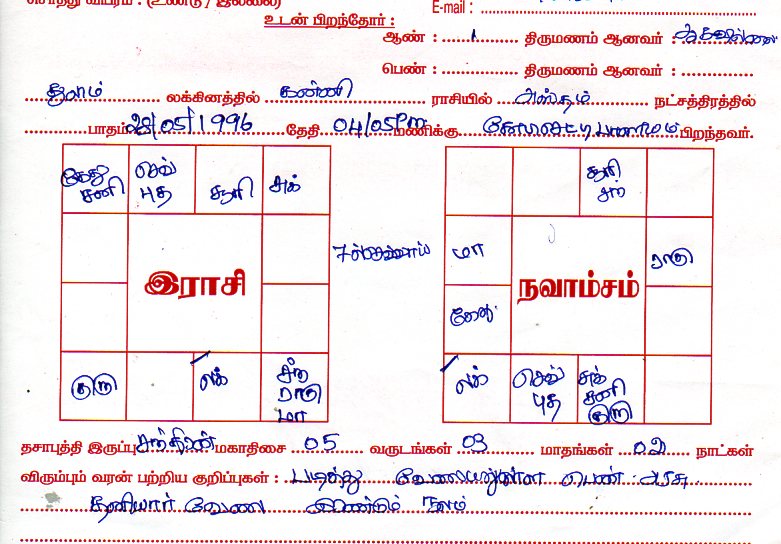 சொத்து விபரம் : (உண்டு / இல்லை)
E-mail :
உடன் பிறந்தோர் :
ஆண் : 1 திருமணம் ஆனவர் :
பெண் : திருமணம் ஆனவர் :
துலாம் லக்கினத்தில் கன்னி ராசியில் அஸ்தம் நட்சத்திரத்தில்
பாதம் 28/05/1996 தேதி 04/05PM மணிக்கு பிறந்தவர்.
கேது சனி செவ் புத சூரி சுக்
சூரி சந்
7ல் செவ்வாய் மா ராகு
இராசி நவாம்சம்
கேது
குரு லக் சந் ராகு மா
லக் செவ் புத சுக் சனி குரு
தசாபுத்தி இருப்பு சந்திரன் மகாதிசை 05 வருடங்கள் 03 மாதங்கள் 02 நாட்கள்
விரும்பும் வரன் பற்றிய குறிப்புகள் : படித்து வேலையிலுள்ள பெண் அரசு
தனியார் வேலை